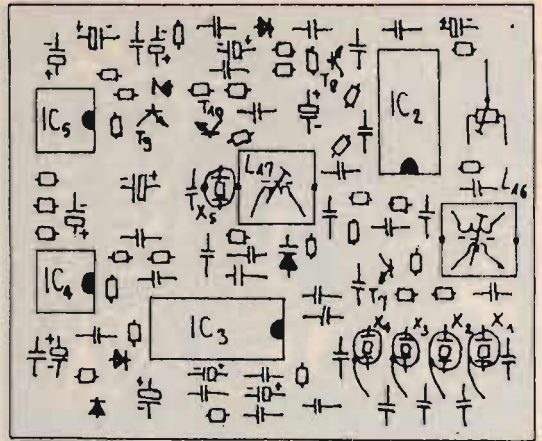 T8
IC2
IC5
T9
T10
L17
X5
L16
IC4
T7
IC3
X4
X3
X2
X1